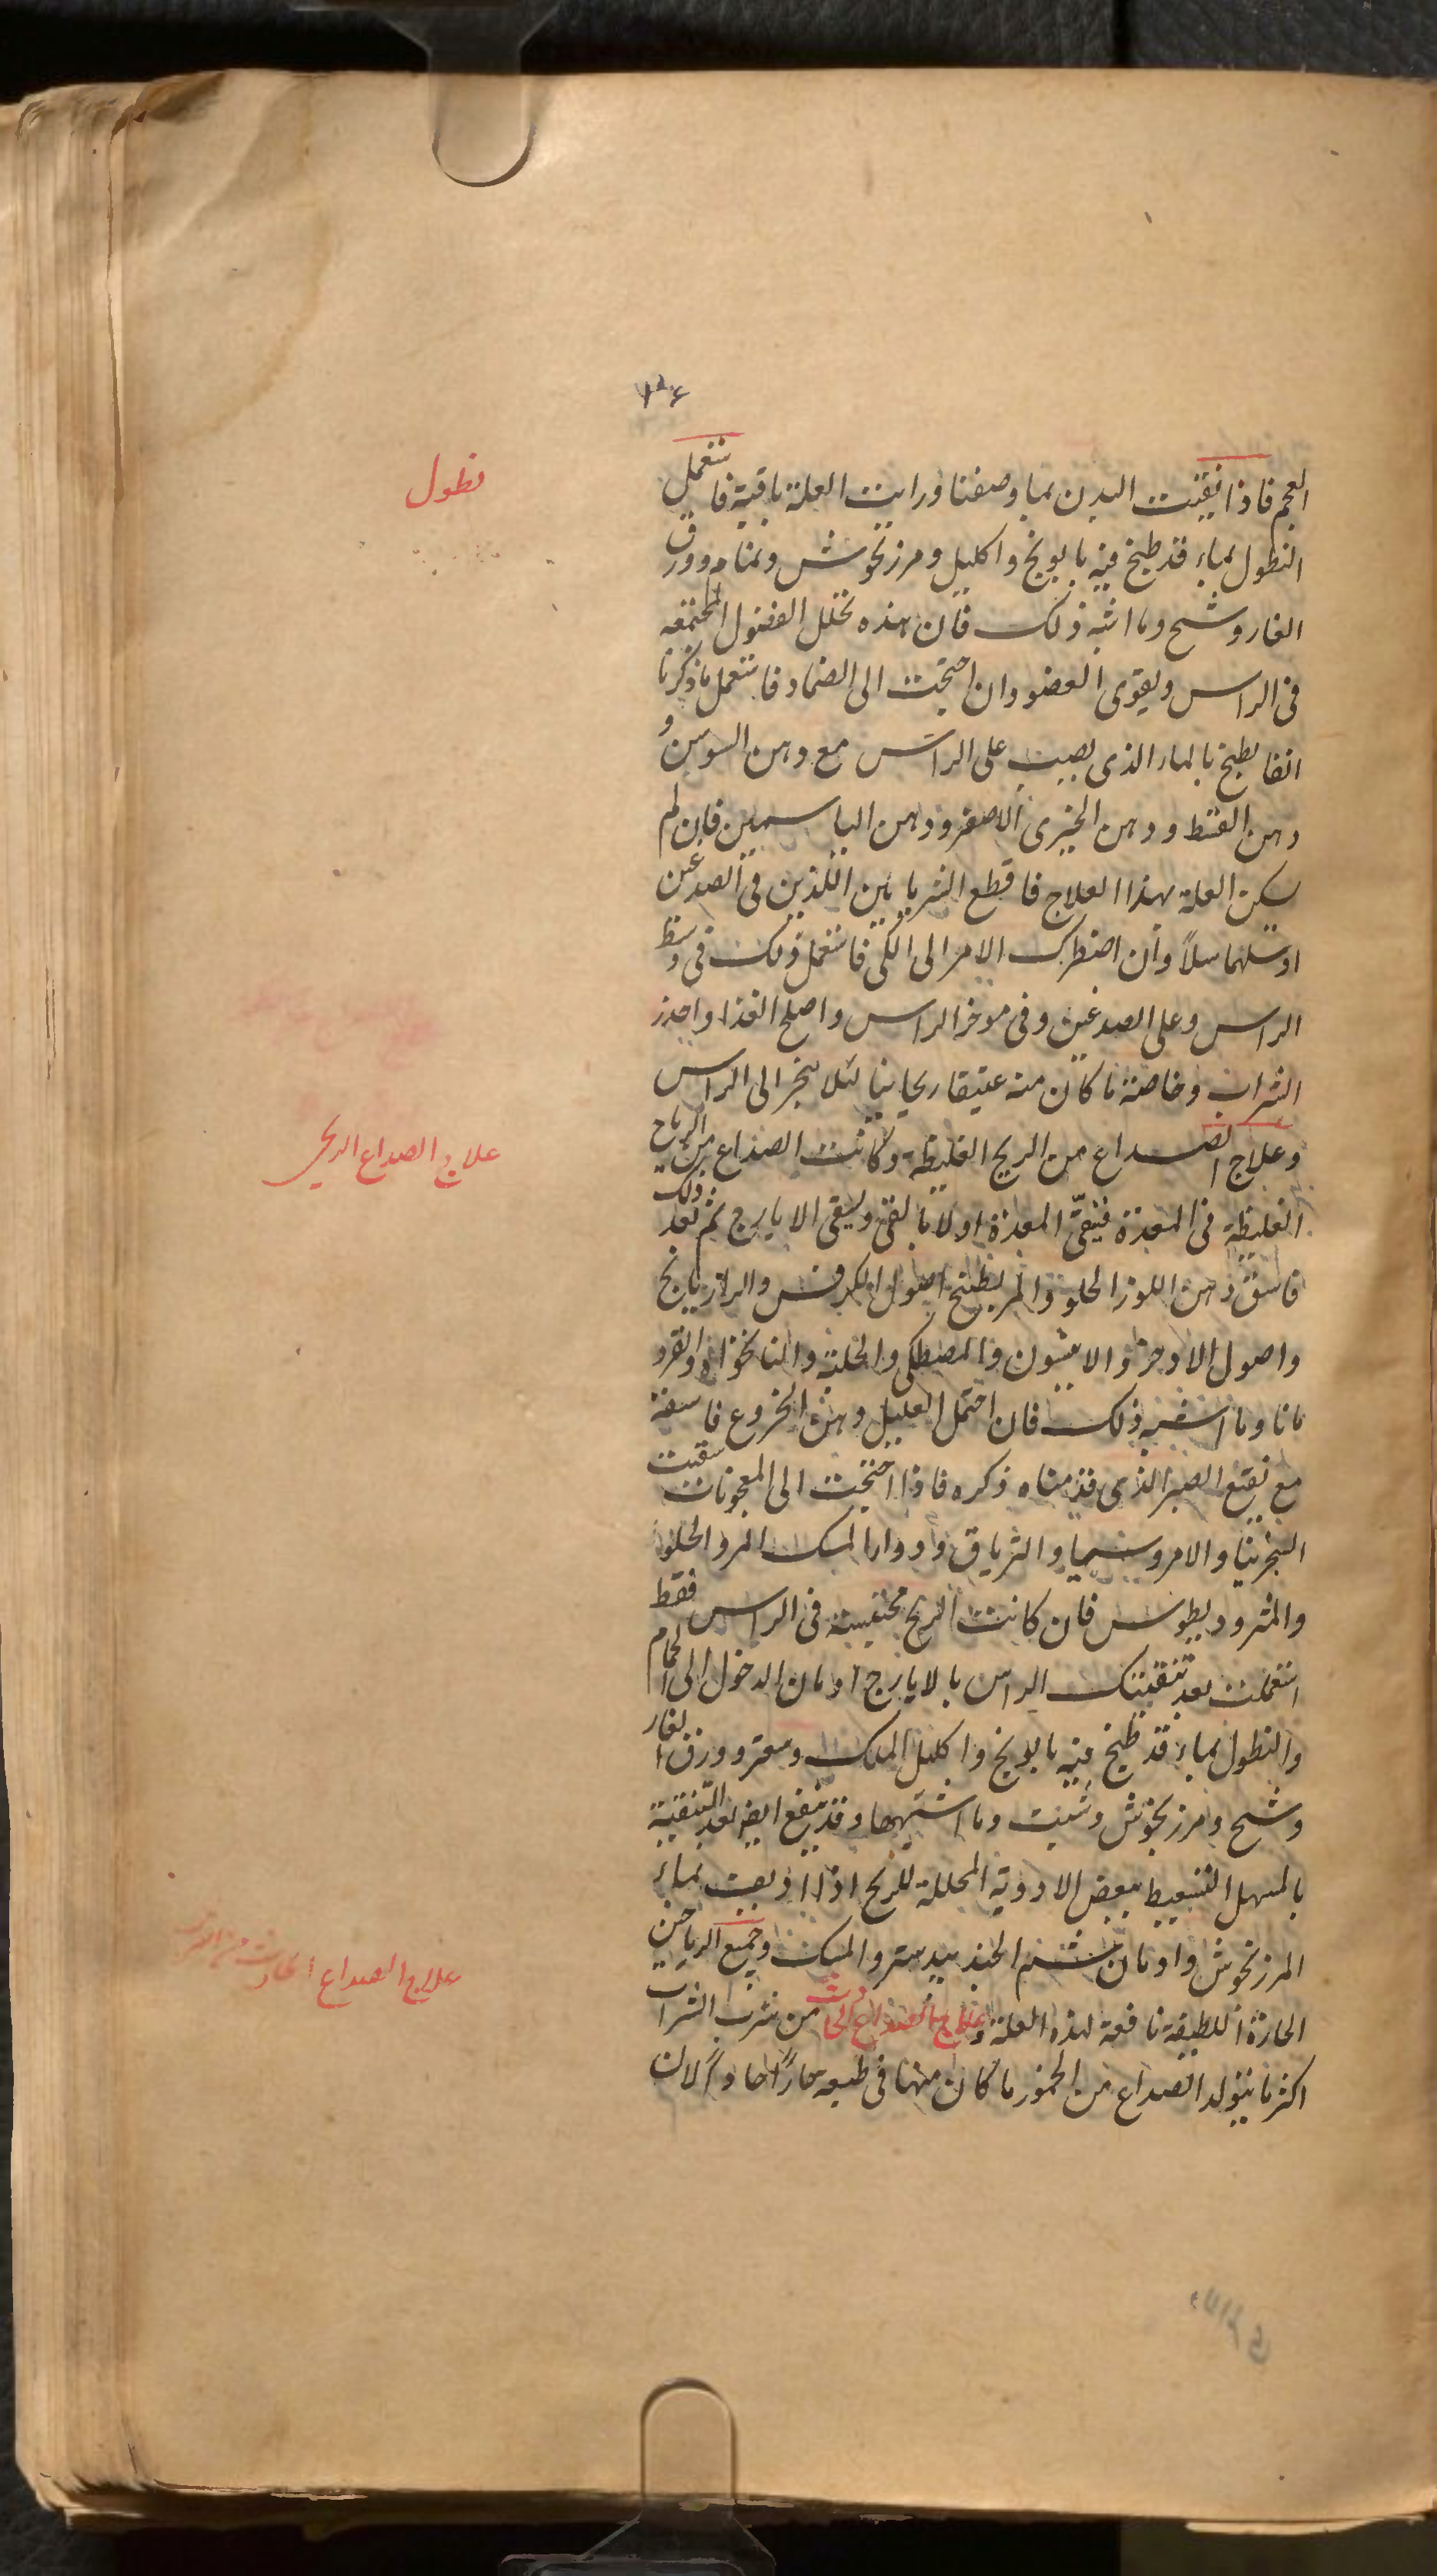 نطول
العجم فاذا نقيت البدن بما وصفنا ورايت العلة باقية فاستعمل
النطول بماء قد طبخ فيه بابونج واكليل ومرزنجوش ونمام وورق
الغار وشيح وما اشبه ذلك فان هذه تحلل الفضول المجتمعه
فى الراس ويقوى العضو وان احتجت الى الضماد فاستعمل ما ذكرنا
انفا يطبخ بالماء الذى يصب على الراس مع دهن السوسن و
دهن القسط ودهن الخيرى الاصفر ودهن الياسمين فان لم
يسكن العلة بهذا العلاج فاقطع الشريانين اللذين فى الصدغين
اوسلهما سلاً وان اضطرك الامر الى الكى فاستعمل ذلك فى وسط
الراس وعلى الصدغين وفى موخر الراس واصلح الغذا واحذر
الشراب وخاصة ما كان منه عتيقا ريحانيا لئلا يبخر الى الراس
علاج الصداع الريحى
وعلاج الصداع من الريح الغليظة وكانت الصداع من الرياح
الغليظة فى المعدة فينقّى المعدة اولا بالقى ويسقى الايارج ثم بعد ذلك
فاسق دهن اللوز الحلو والمر بطبيخ اصول الكرفس والرازيانج
واصول الاذخر والانيسون والمصطكى والحلبة والنانخواه والقرد
مانا وما اشبه ذلك فان احتمل العليل دهن الخروع فاسقه
مع نقيع الصبر الذى قدمناه ذكره فاذا احتجت الى المعجونات سقيت
السجزنيا والامروسيا والترياق ودواء المسك المر والحلو
والمثروديطوس فان كانت الريح محتبسة فى الراس فقط
استعملت بعد تنقيتك الراس بالايارج ادمان الدخول الى الحمام
والنطول بماء قد طبخ فيه بابونج واكليل الملك وصعتر وورق الغار
وشيح ومرزنجوش وشبت وما اشبهها وقد ينفع ايضا بعد التنقية
بالمسهل التسعيط ببعض الادوية المحللة للريح اذا اذيفت بماء
المرزنجوش وادمان شم الجندبيدستر والمسك وجميع الرياحين
علاج الصداع الحادث من
الحارة اللطيفة نافعة لهذه العلة وعلاج الصداع الحادث من شرب الشراب
اكثر ما يتولد الصداع من الخمور ما كان منها فى طبعه حارًا حادًا لان